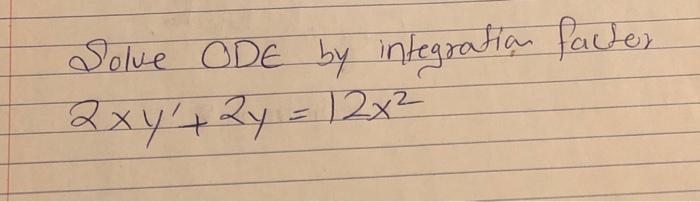 Solve ODE by integration facter
2xy' + 2y = 12x²